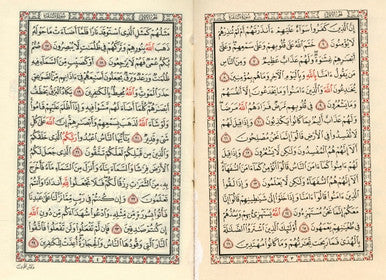 إِنَّ الَّذِينَ كَفَرُوا سَوَاءٌ عَلَيْهِمْ ءَأَنْذَرْتَهُمْ أَمْ لَمْ تُنْذِرْهُمْ
لَا يُؤْمِنُونَ خَتَمَ اللَّهُ عَلَى قُلُوبِهِمْ وَعَلَى سَمْعِهِمْ وَعَلَى
أَبْصَارِهِمْ غِشَاوَةٌ وَلَهُمْ عَذَابٌ عَظِيمٌ وَمِنَ النَّاسِ
مَنْ يَقُولُ ءَامَنَّا بِاللَّهِ وَبِالْيَوْمِ الْآخِرِ وَمَا هُمْ بِمُؤْمِنِينَ
يُخَادِعُونَ اللَّهَ وَالَّذِينَ ءَامَنُوا وَمَا يَخْدَعُونَ إِلَّا أَنْفُسَهُمْ
وَمَا يَشْعُرُونَ فِي قُلُوبِهِمْ مَرَضٌ فَزَادَهُمُ اللَّهُ مَرَضًا
وَلَهُمْ عَذَابٌ أَلِيمٌ بِمَا كَانُوا يَكْذِبُونَ وَإِذَا قِيلَ لَهُمْ
لَا تُفْسِدُوا فِي الْأَرْضِ قَالُوا إِنَّمَا نَحْنُ مُصْلِحُونَ
أَلَا إِنَّهُمْ هُمُ الْمُفْسِدُونَ وَلَكِنْ لَا يَشْعُرُونَ وَإِذَا قِيلَ
لَهُمْ ءَامِنُوا كَمَا ءَامَنَ النَّاسُ قَالُوا أَنُؤْمِنُ كَمَا ءَامَنَ السُّفَهَاءُ
أَلَا إِنَّهُمْ هُمُ السُّفَهَاءُ وَلَكِنْ لَا يَعْلَمُونَ وَإِذَا لَقُوا
الَّذِينَ ءَامَنُوا قَالُوا ءَامَنَّا وَإِذَا خَلَوْا إِلَى شَيَاطِينِهِمْ قَالُوا إِنَّا
مَعَكُمْ إِنَّمَا نَحْنُ مُسْتَهْزِءُونَ اللَّهُ يَسْتَهْزِئُ بِهِمْ وَيَمُدُّهُمْ
فِي طُغْيَانِهِمْ يَعْمَهُونَ أُولَئِكَ الَّذِينَ اشْتَرَوُا الضَّلَالَةَ
بِالْهُدَى فَمَا رَبِحَتْ تِجَارَتُهُمْ وَمَا كَانُوا مُهْتَدِينَ
مَثَلُهُمْ كَمَثَلِ الَّذِي اسْتَوْقَدَ نَارًا فَلَمَّا أَضَاءَتْ مَا حَوْلَهُ
ذَهَبَ اللَّهُ بِنُورِهِمْ وَتَرَكَهُمْ فِي ظُلُمَاتٍ لَا يُبْصِرُونَ
صُمٌّ بُكْمٌ عُمْيٌ فَهُمْ لَا يَرْجِعُونَ أَوْ كَصَيِّبٍ مِنَ السَّمَاءِ فِيهِ
ظُلُمَاتٌ وَرَعْدٌ وَبَرْقٌ يَجْعَلُونَ أَصَابِعَهُمْ فِي ءَاذَانِهِمْ مِنَ
الصَّوَاعِقِ حَذَرَ الْمَوْتِ وَاللَّهُ مُحِيطٌ بِالْكَافِرِينَ يَكَادُ الْبَرْقُ
يَخْطَفُ أَبْصَارَهُمْ كُلَّمَا أَضَاءَ لَهُمْ مَشَوْا فِيهِ وَإِذَا أَظْلَمَ عَلَيْهِمْ
قَامُوا وَلَوْ شَاءَ اللَّهُ لَذَهَبَ بِسَمْعِهِمْ وَأَبْصَارِهِمْ إِنَّ اللَّهَ عَلَى كُلِّ
شَيْءٍ قَدِيرٌ يَاأَيُّهَا النَّاسُ اعْبُدُوا رَبَّكُمُ الَّذِي خَلَقَكُمْ
وَالَّذِينَ مِنْ قَبْلِكُمْ لَعَلَّكُمْ تَتَّقُونَ الَّذِي جَعَلَ لَكُمُ
الْأَرْضَ فِرَاشًا وَالسَّمَاءَ بِنَاءً وَأَنْزَلَ مِنَ السَّمَاءِ مَاءً فَأَخْرَجَ
بِهِ مِنَ الثَّمَرَاتِ رِزْقًا لَكُمْ فَلَا تَجْعَلُوا لِلَّهِ أَنْدَادًا وَأَنْتُمْ
تَعْلَمُونَ وَإِنْ كُنْتُمْ فِي رَيْبٍ مِمَّا نَزَّلْنَا عَلَى عَبْدِنَا
فَأْتُوا بِسُورَةٍ مِنْ مِثْلِهِ وَادْعُوا شُهَدَاءَكُمْ مِنْ دُونِ اللَّهِ
إِنْ كُنْتُمْ صَادِقِينَ فَإِنْ لَمْ تَفْعَلُوا وَلَنْ تَفْعَلُوا فَاتَّقُوا
النَّارَ الَّتِي وَقُودُهَا النَّاسُ وَالْحِجَارَةُ أُعِدَّتْ لِلْكَافِرِينَ